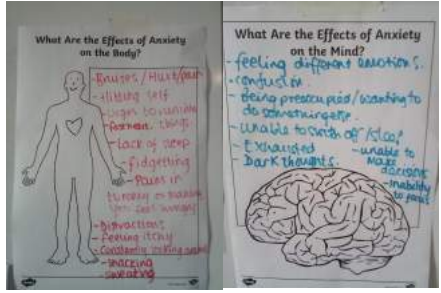 What Are the Effects of Anxiety
on the Body?
- Bruises / Hurt/pain
- Hitting self
- Urges to
things
- Lack of sleep
- fidgetting
- Pains in
you feel hungry
- Distractions
- feeling itchy
- Constantly looking
- shaking
- sweating
What Are the Effects of Anxiety
on the Mind?
- feeling different emotions.
- confusion.
- Being preoccupied/wanting to
do something else.
- unable to switch off/sleep
- Exhausted
- Dark thoughts.
- unable to
make
decisions
- inability
to focus